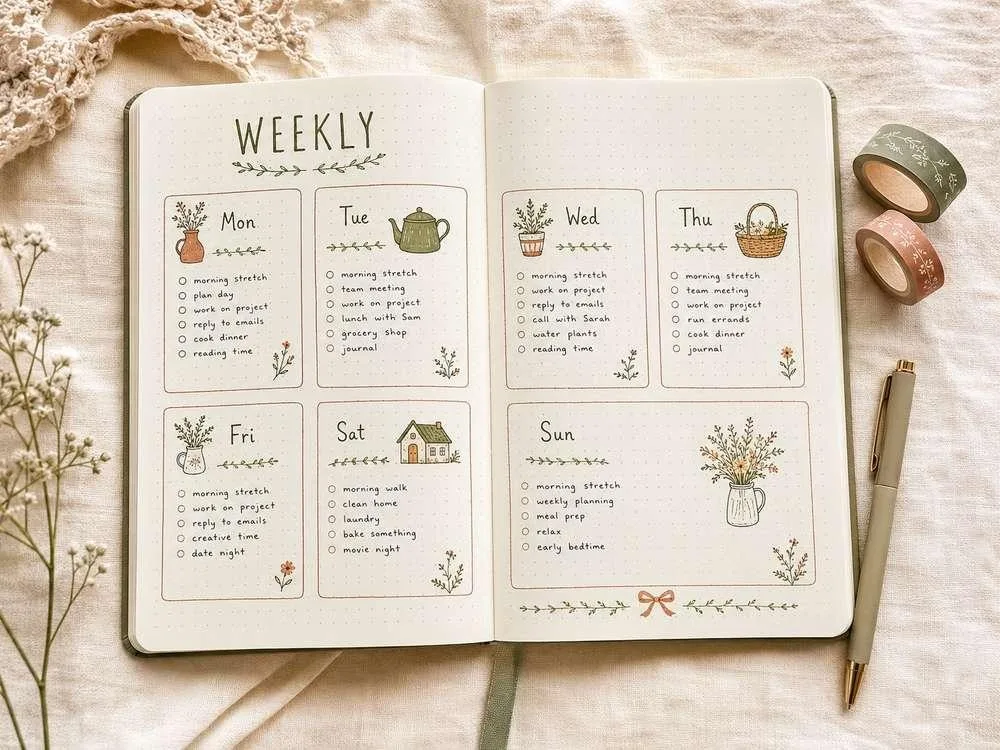 WEEKLY
Mon
morning stretch
plan day
work on project
reply to emails
cook dinner
reading time
Tue
morning stretch
team meeting
work on project
lunch with Sam
grocery shop
journal
Wed
morning stretch
work on project
reply to emails
call with Sarah
water plants
reading time
Thu
morning stretch
team meeting
work on project
run errands
cook dinner
journal
Fri
morning stretch
work on project
reply to emails
creative time
date night
Sat
morning walk
clean home
laundry
bake something
movie night
Sun
morning stretch
weekly planning
meal prep
relax
early bedtime